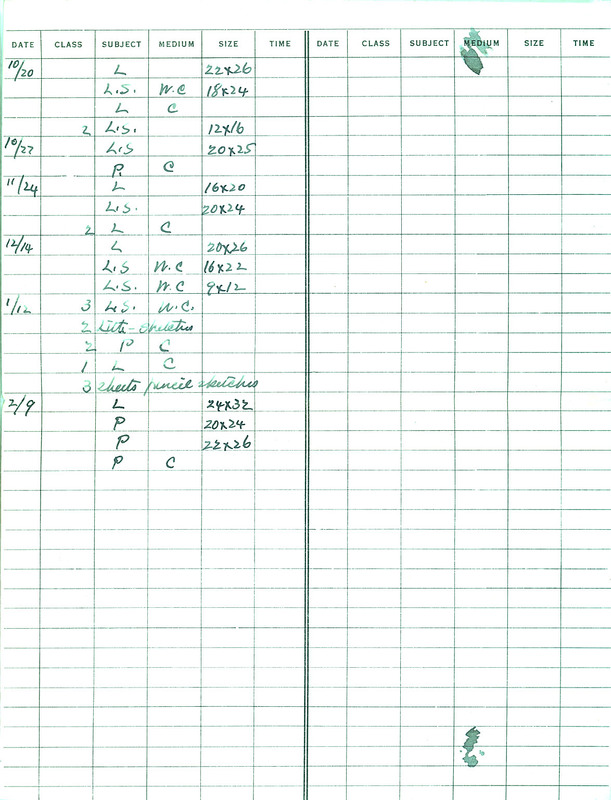 DATE CLASS SUBJECT MEDIUM SIZE TIME DATE CLASS SUBJECT MEDIUM SIZE TIME
10/20 L 22x26
L.S. W.C 18x24
L C
2 L.S. 12x16
10/27 L.S 20x25
P. C
11/24 L 16x20
L.S. 20x24
2 L C
12/14 L 20x26
L.S W.C 16x22
L.S. W.C 9x12
1/12 3 L.S. W.C.
2
2 P C
1 L C
3 sheets pencil sketches
2/9 L 24x32
P 20x24
P 22x26
P C